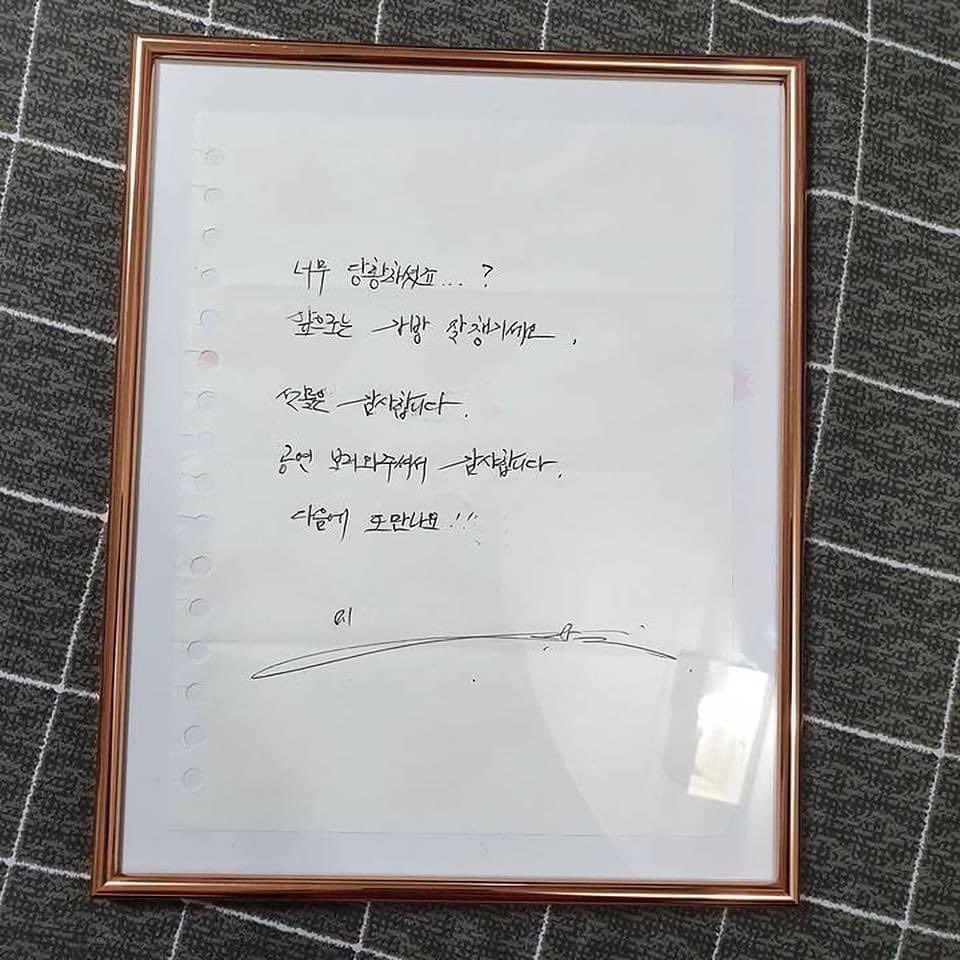 너무 당황하셨죠...?
앞으로는 가방 잘 챙기세요.
선물은 감사합니다.
공연 보러와주셔서 감사합니다.
다음에 또 만나요!!!